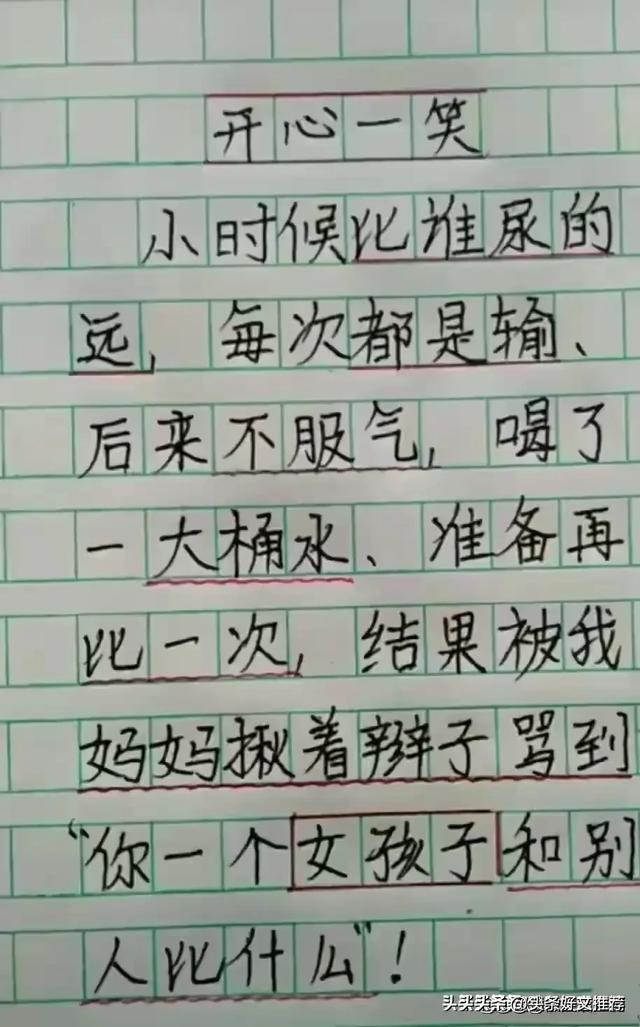 开心一笑
小时候比谁尿的
远，每次都是输、
后来不服气，喝了
一大桶水、准备再
比一次，结果被我
妈妈揪着辫子骂到
“你一个女孩子和别
人比什么”！